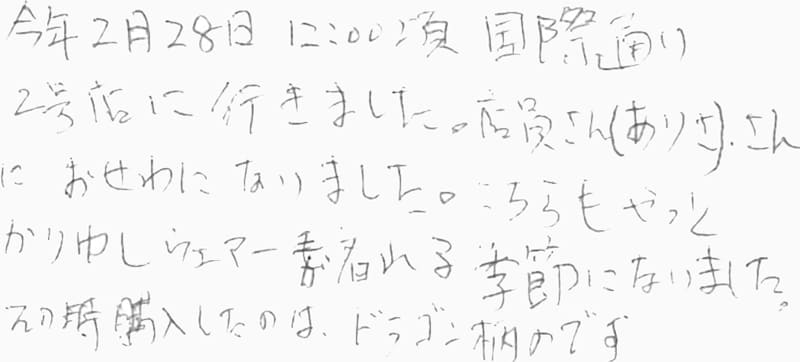 今年2月28日 12:00頃 国際通り
2号店に行きました。店員さん(ありさ).さん
に おせわに なりました。こちらも やっと
かりゆしウェアーが着れる 季節になりました。
その時購入したのは、ドラゴン柄のです